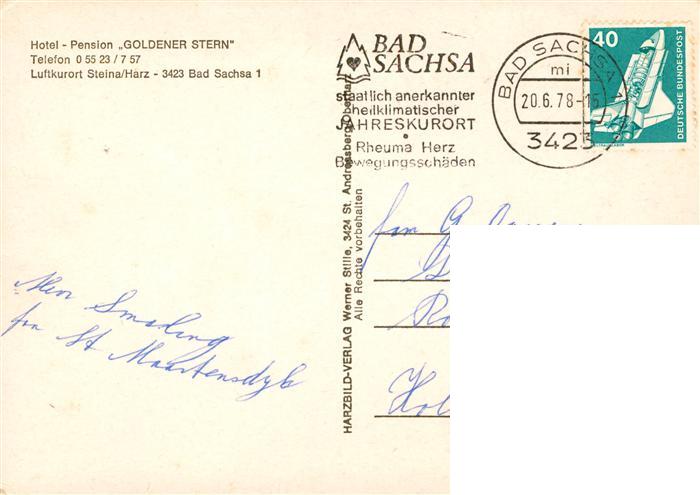 Hotel - Pension „GOLDENER STERN"
Telefon 0 55 23 / 7 57
Luftkurort Steina/Harz - 3423 Bad Sachsa 1
BAD
SACHSA
staatlich anerkannter
heilklimatischer
JAHRESKURORT
Rheuma Herz
Bewegungsschäden
BAD SACHSA 1
mi
20.6.78-15
3423
40
DEUTSCHE BUNDESPOST
HARZBILD-VERLAG Werner Stille, 3424 St. Andreasberg/Oberharz
Alle Rechte vorbehalten
fam G
Hol
fam St Maartensdyk